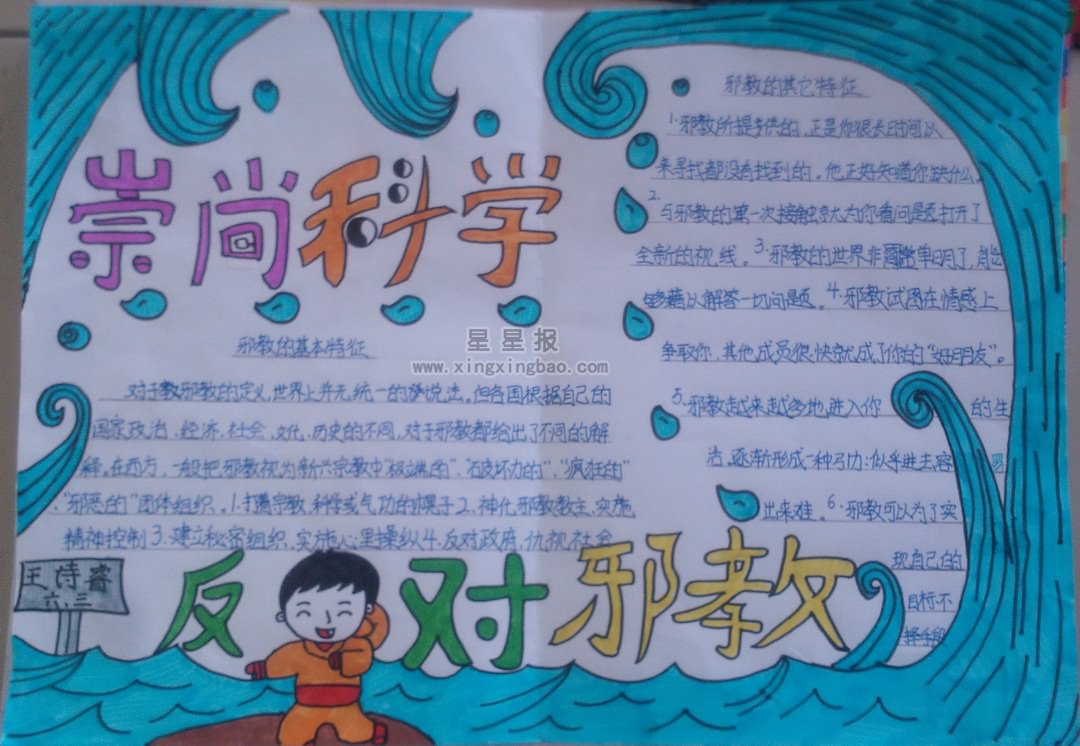 崇尚科学
邪教的基本特征
对于教邪教的定义,世界上并无统一的说法。但各国根据自己的
国家政治、经济、社会、文化、历史的不同,对于邪教都给出了不同的解
释。在西方,一般把邪教视为新兴宗教中"极端的"、"破坏力的"、"疯狂的"
"邪恶的"团体组织。1.打着宗教、科学或气功的幌子2、神化邪教教主、实施
精神控制3、建立秘密组织、实施心里操纵4、反对政府、仇视社会
邪教的其它特征
1.邪教所提供的,正是你很长时间以
来寻找都没有找到的。他正好知道你缺什么。
2.与邪教的第一次接触就为你看问题打开了
全新的视线。3.邪教的世界非常单明了,能
够藉以解答一切问题。4.邪教试图在情感上
争取你,其他成员很快就成了你的"好朋友"。
5.邪教越来越多地进入你的生
活,逐渐形成一种引力:似乎进去容易
出来难。6.邪教可以为了实
现自己的
目标不
择手段
反对邪教
王诗睿
六、三
星星报
www.xingxingbao.com